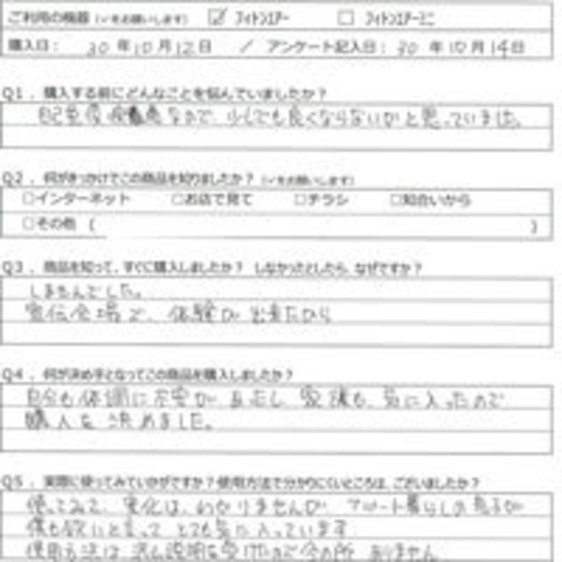 ご利用の機器 (✓をお願いします) ☑ フィトンエアー □ フィトンエアーミニ
購入日: 30 年 10 月 12 日 / アンケート記入日: 30 年 10 月 14 日
Q1. 購入する前にどんなことを悩んでいましたか?
自己免疫疾患なので、少しでも良くならないかと思っていました。
Q2. 何がきっかけでこの商品を知りましたか? (✓をお願いします)
□インターネット □お店で見て □チラシ □知合いから
□その他 ( )
Q3. 商品を知って、すぐに購入しましたか? しなかったとしたら、なぜですか?
しませんでした。
宣伝会場で、体験が出来たから
Q4. 何が決め手となってこの商品を購入しましたか?
自分も体調に不安が 家族も、気に入ったので
購入を決めました。
Q5. 実際に使ってみていかがですか?使用方法で分かりにくいところは、ございましたか?
使ってみて、変化は、わかりませんが、アパート暮らしの息子が
僕も欲しいと言って とても気に入っています
使用方法は 説明を受けたので今の所 ありません